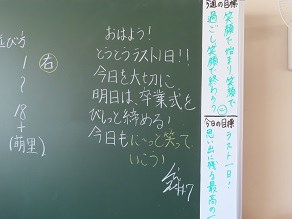 おはよう!
とうとうラスト1日!!
今日を大切に、
明日は、卒業式を
びしっと締める!
今日もに〜っと笑って
いこう!
び方
1 右
7
18
+
(萌里)
今週の目標
笑顔で始まり笑顔で
過ごし笑顔で終わろう
今日の目標
ラスト一日!
思い出に残る最高の